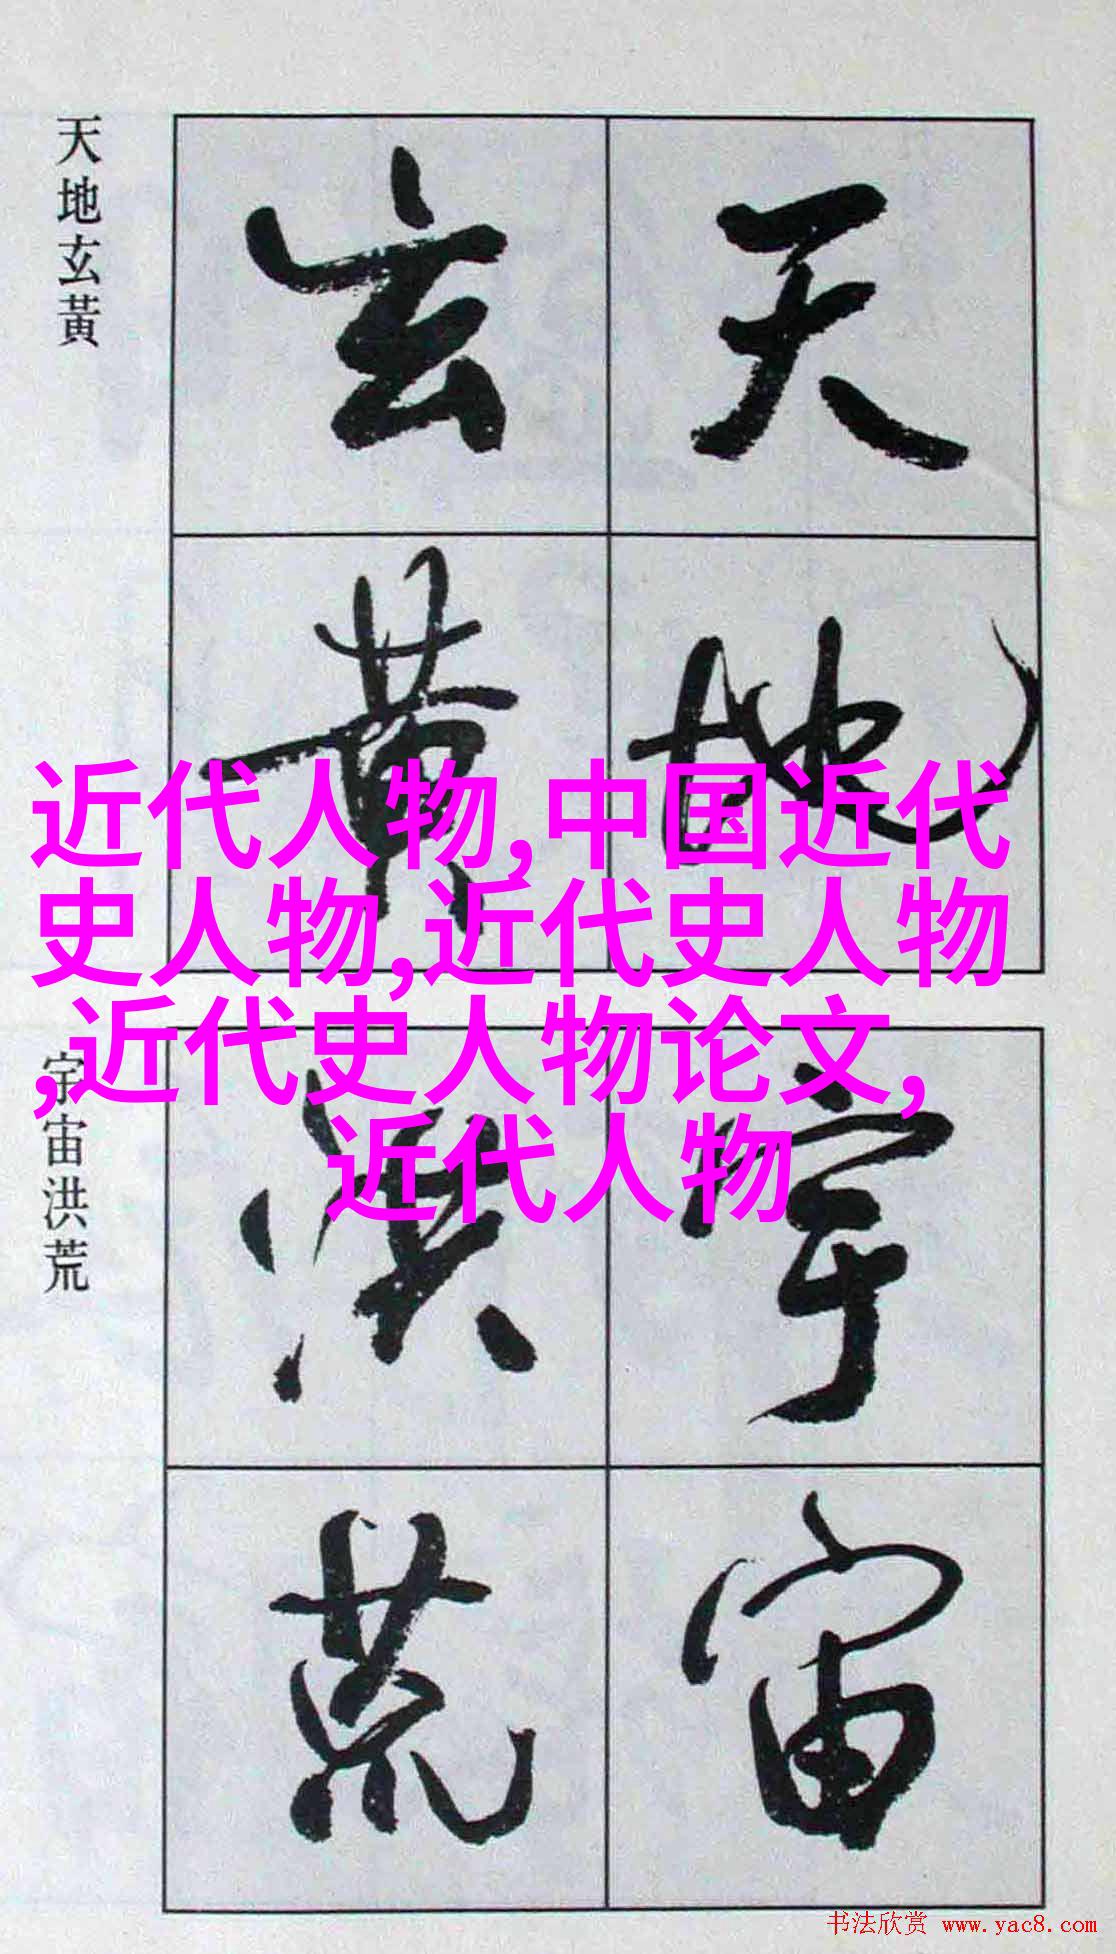 天地玄黃
天地
玄黄
近代人物,中国近代
史人物,近代史人物
,近代史人物论文,
近代人物
宇宙洪荒
宇宙
洪荒
书法欣赏 www.yac8.com